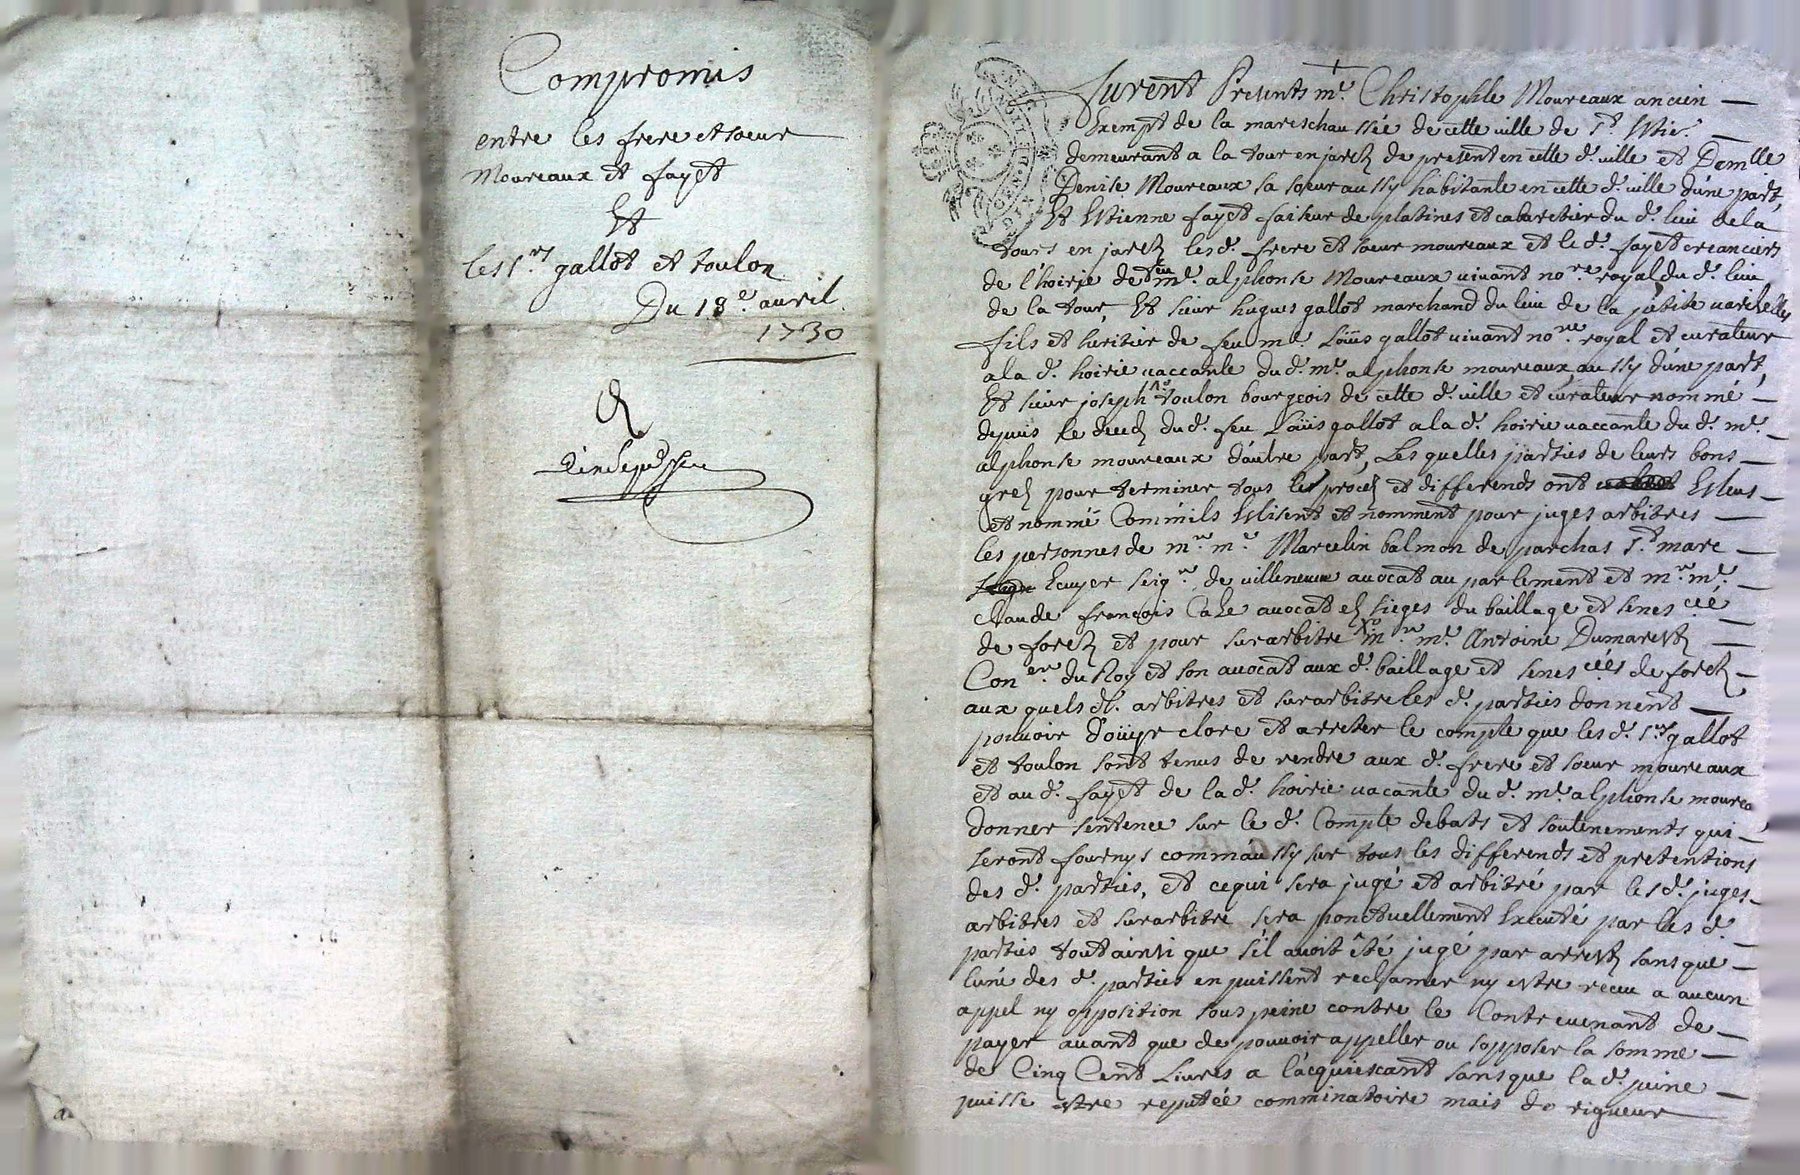 Compromis
entre les frere et soeur
Moureaux et fayet
Et
les s.rs gallot et toulon
Du 18.e auril
1730
furent Presents m.e Christophle Moureaux ancien
Exempt de la mareschaussée de cette ville de s.t Etie.
demeurant a la tour en jarez de present en cette d. ville et Demlle
Denise Moureaux sa soeur aussy habitante en cette d. ville d'une part,
Et Estienne fayet faiseur de platines et cabaretier du d. lieu de la
tours en jarez les d. frere et soeur moureaux et le d. fayet creanciers
de l'hoirie de feu m.e alphonse Moureaux uiuant no.re royal du d. lieu
de la tour, Et sieur hugues gallot marchand du lieu de la petite uarizelles
fils et heritier de feu m.e Loüis gallot uiuant no.re royal et curateur
a la d. hoirie uaccante du d. m.e alphonse moureaux aussy d'une part,
Et sieur joseph toulon bourgeois de cette d. uille et curateur nommé
depuis le decez du d. feu Loüis gallot a la d. hoirie uaccante du d. m.e
alphonse moureaux d'autre part, Les quelles parties de leurs bons
grez pour terminer tous les procez et differends ont Esleus
et nommé Comm'ils Eslisent et nomment pour juges arbitres
les personnes de m.re m.e Marcelin balmon de parchas s.t marc
Ecuyer seig.r de uilleneuue auocat au parlement et m.re m.e
claude françois Caze auocat ez sieges du baillage et senes.cée
de forez et pour surarbitre m.re m.e Antoine Dumarest
Con.er du Roy et son auocat aux d. baillage et senes.cées de forez
aux quels d. arbitres et surarbitre les d. parties donnent
pouuoir d'oüyr clore et arreter le compte que les d. s.rs gallot
et toulon sont tenus de rendre aux d. frere et soeur moureaux
et au d. fayet de la d. hoirie uacante du d. m.e alphonse mourea
donner sentence sur le d. Compte debats et soutenements qui
seront fournys comm'aussy sur tous les differends et pretentions
des d. parties, et ce qui sera jugé et arbitré par les d. juges
arbitres et surarbitre sera ponctuellement Executé par les d.
parties tout ainsi que s'il auoit été jugé par arrest sans que
l'une des d. parties en puissent reclamer ny estre receu a aucun
appel ny opposition sous peine contre le Contreuenant de
payer auant que de pouuoir appeller ou s'opposer la somme
de Cinq Cent Liures a l'acquiescant sans que la d. peine
puisse estre reputée comminatoire mais de rigueur